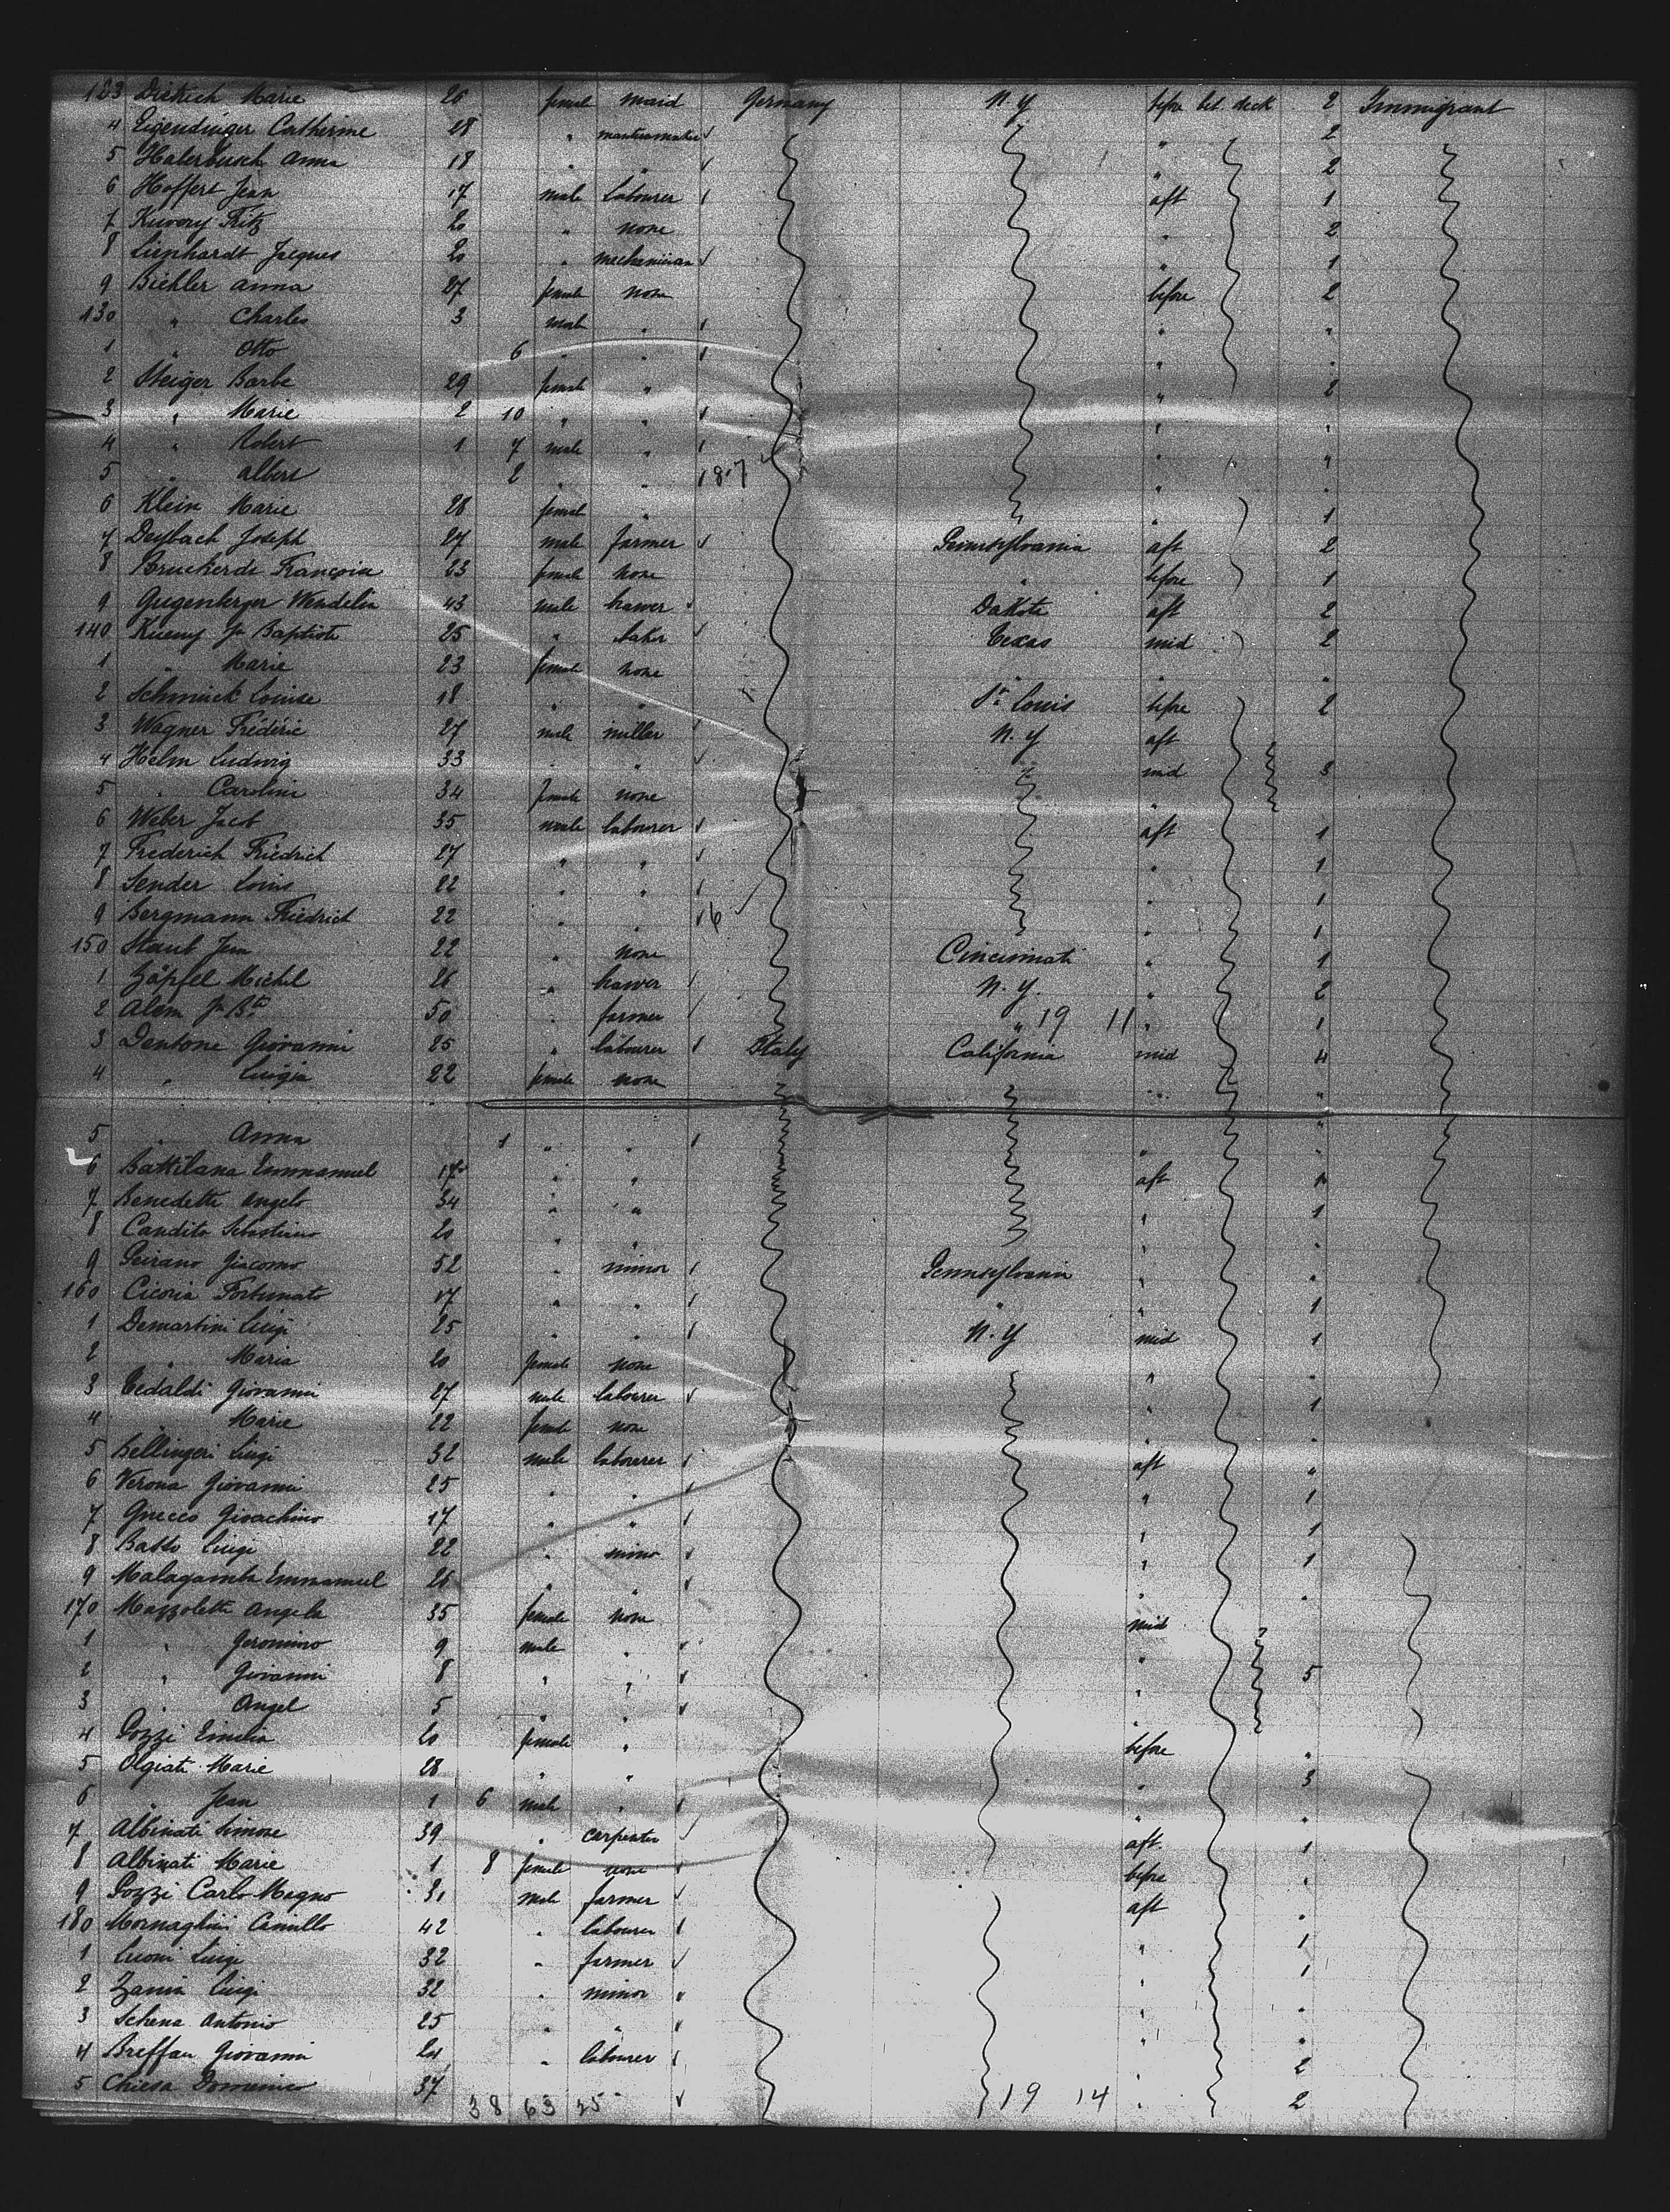 123 Dietrich Marie 26 female maid Germany N.Y before bet. deck 2 Immigrant
4 Eigendinger Catherine 28 " mantuamaker " 2
5 Halerbusch Anna 18 " " " 2
6 Hoffert Jean 17 male labourer aft 1
7 Kuvery Fritz 20 " none " 2
8 Lienhardt Jacques 20 " mechanician " 1
9 Biehler Anna 27 female none before 2
130 " Charles 3 male " " "
1 " Otto 6 " " " "
2 Steiger Barbe 29 female " " 2
3 " Marie 2 10 " " " "
4 " Robert 1 7 male " " "
5 " Albert 2 " " 187 " "
6 Klein Marie 28 female " " 1
7 Deybach Joseph 27 male farmer Pennsylvania aft 2
8 Bruckerde 23 female none " before 1
9 Gugenberger Wendelin 43 male Dakota aft 2
140 Kueny Jn Baptiste 25 " baker Texas mid 2
1 " Marie 23 female none " " "
2 Schmuck Louise 18 " " St Louis before 2
3 Wagner Fréderic 27 male miller N.Y aft
4 Helm Ludwig 33 " " " mid 3
5 " Carolini 34 female none "
6 Weber Jacob 35 male labourer aft 1
7 Frederich Friedrich 27 " " " 1
8 Sender Louis 22 " " " 1
9 Bergmann Friedrich 22 " " 6 " 1
150 Staub Jean 22 " none Cincinnati " 1
1 Zäpfel Michel 26 " N.Y. " 2
2 Alem Jn Bte 50 " farmer " 19 11 " 1
3 Dentone Giovanni 25 " labourer Italy California mid 4
4 " Luigia 22 female none " "
5 " Anna 1 " " " "
6 Battilana Emmanuel 17 " " aft 1
7 Benedetti Angelo 34 " " " 1
8 Candito Sebastiano 20 " " " "
9 Peirano Giacomo 52 " minor Pennsylvania " "
160 Ciconia Fortunato 17 " " " " 1
1 Demartini Luigi 25 " " N.Y mid 1
2 " Maria 20 female none " "
3 Tedaldi Giovanni 27 male labourer " 1
4 " Marie 22 female none " "
5 Bellingeri Luigi 32 male labourer aft "
6 Verona Giovanni 25 " " " 1
7 Gnecco Gioachino 17 " " " 1
8 Basso Luigi 22 " minor " 1
9 Malagamba Emmanuel 26 " " " "
170 Mazzoletti Angela 35 female none mid
1 " Geronimo 9 male " "
2 " Giovanni 8 " " " 5
3 " Angel 5 " " "
4 Pozzi Emilia 20 female " before "
5 Olgiati Marie 28 " " " 3
6 " Jean 1 6 male " " "
7 Albinati Simone 39 " carpenter aft 1
8 Albinati Marie 1 8 female none before "
9 Pozzi Carlo Magno 31 male farmer aft "
180 Mornaghini Camillo 42 " labourer " 1
1 Luoni Luigi 32 " farmer " 1
2 Zanin Luigi 32 " minor " "
3 Schena Antonio 25 " " " "
4 Breffau Giovanni 24 " labourer " 2
5 Chiesa Domenico 37 " 2
38 63 25 19 14